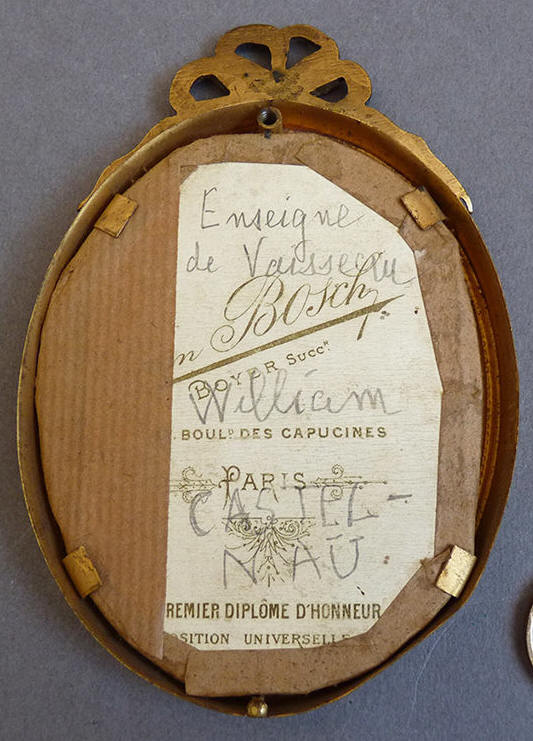 Enseigne
de Vaisseau
n Bosch
BOYER Succr
William
. BOULD DES CAPUCINES
PARIS
CASTEL-
NAU
REMIER DIPLÔME D'HONNEUR
OSITION UNIVERSELLE